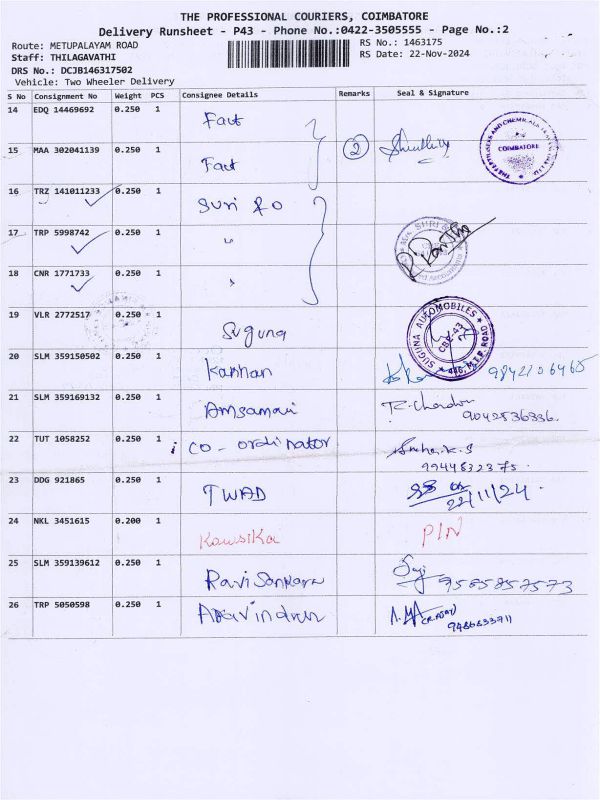 THE PROFESSIONAL COURIERS, COIMBATORE
Delivery Runsheet - P43 - Phone No.:0422-3505555 - Page No.:2
Route: METUPALAYAM ROAD
RS No.: 1463175
Staff: THILAGAVATHI
RS Date: 22-Nov-2024
DRS No.: DCJB146317502
Vehicle: Two Wheeler Delivery
S No Consignment No Weight PCS Consignee Details Remarks Seal & Signature
14 EDQ 14469692 0.250 1 Fact
15 MAA 302041139 0.250 1 Fact 2
COIMBATORE
16 TRZ 141011233 0.250 1 Suri
17 TRP 5998742 0.250 1 "
18 CNR 1771733 0.250 1 "
19 VLR 2772517 0.250 1 Suguna
SUGUNA AUTOMOBILES
CBE-43
446, M.T.P. ROAD
20 SLM 359150502 0.250 1 Kannan
21 SLM 359169132 0.250 1 R. Chandra
9042536336.
22 TUT 1058252 0.250 1 CO-ordinator
9944832375.
23 DDG 921865 0.250 1 TWAD
22/11/24.
24 NKL 3451615 0.200 1 Kawsika PIN
25 SLM 359139612 0.250 1 Ravi Sankara
9565857573
26 TRP 5050598 0.250 1 Aravindran